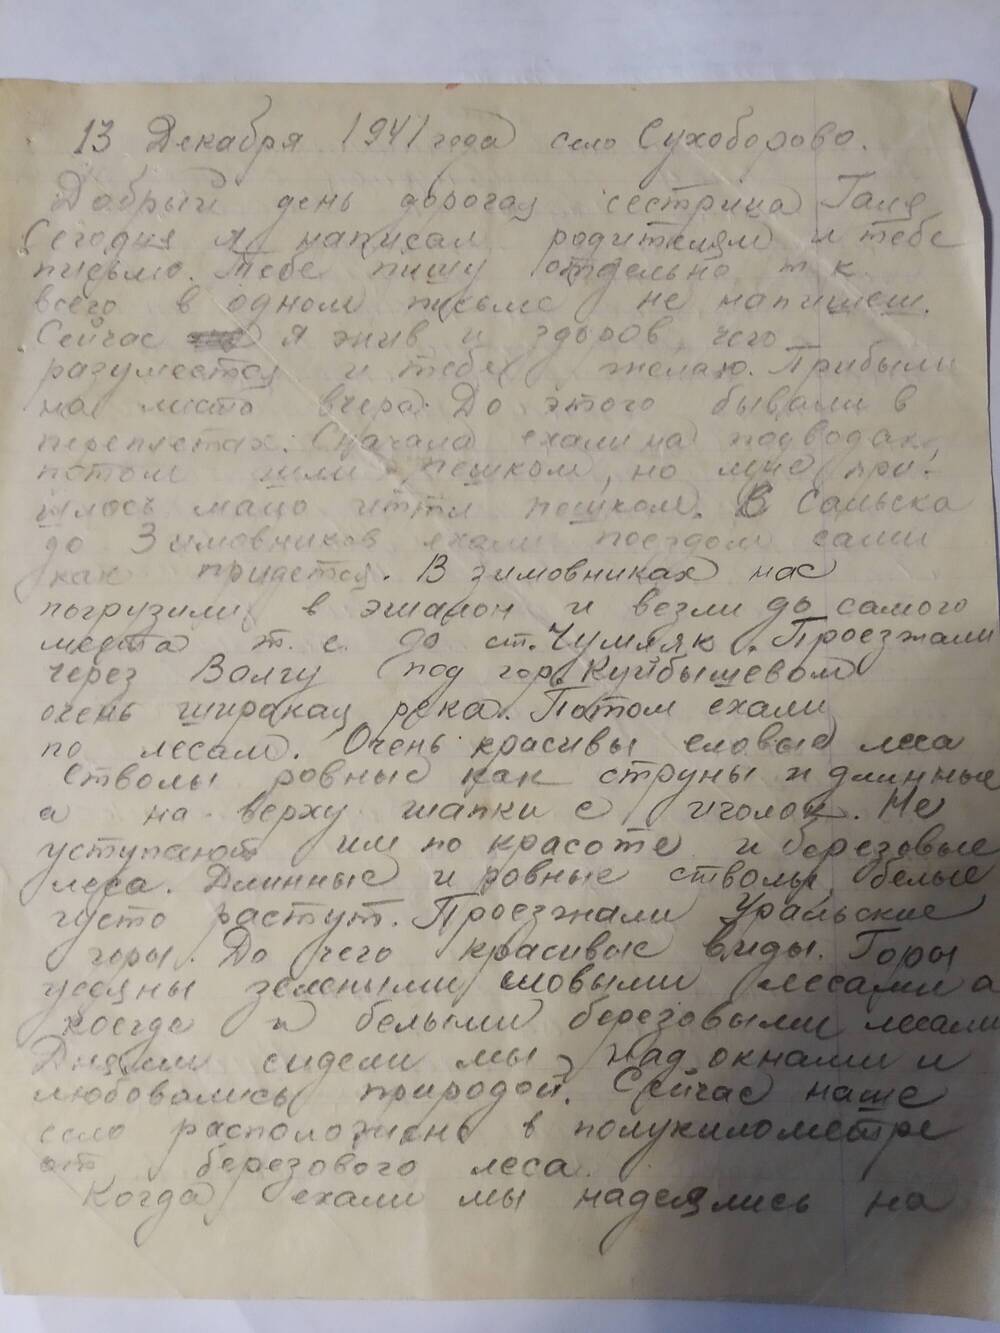 13 Декабря 1941 года село Сухоборово.
Добрый день дорогая сестрица Галя
Сегодня я написал родителям и тебе
письмо. Тебе пишу отдельно т к.
всего в одном письме не напишеш.
Сейчас я жив и здоров, чего
разумеется и тебе желаю. Прибыли
на место вчера. До этого бывали в
переплетах. Сначала ехали на подводах,
потом шли пешком, но мне при-
шлось мало итти пешком. В Сальска
до Зимовников ехали поездом сами
как придется. В зимовниках нас
погрузили в эшалон и везли до самого
места т. е. до ст. Чумляк. Проезжали
через Волгу под гор. Куйбышевом
очень широкая река. Потом ехали
по лесам. Очень красивы еловые леса
Стволы ровные как струны и длинные
а на верху шапки с иголок. Не
уступают им по красоте и березовые
леса. Длинные и ровные стволы, белые
густо растут. Проезжали Уральские
горы. До чего красивые виды. Горы
усеяны зелеными еловыми лесами а
коегде и белыми березовыми лесами
Днями сидели мы над окнами и
любовались природой. Сейчас наше
село расположено в полукилометре
от березового леса.
Когда ехали мы надеялись на